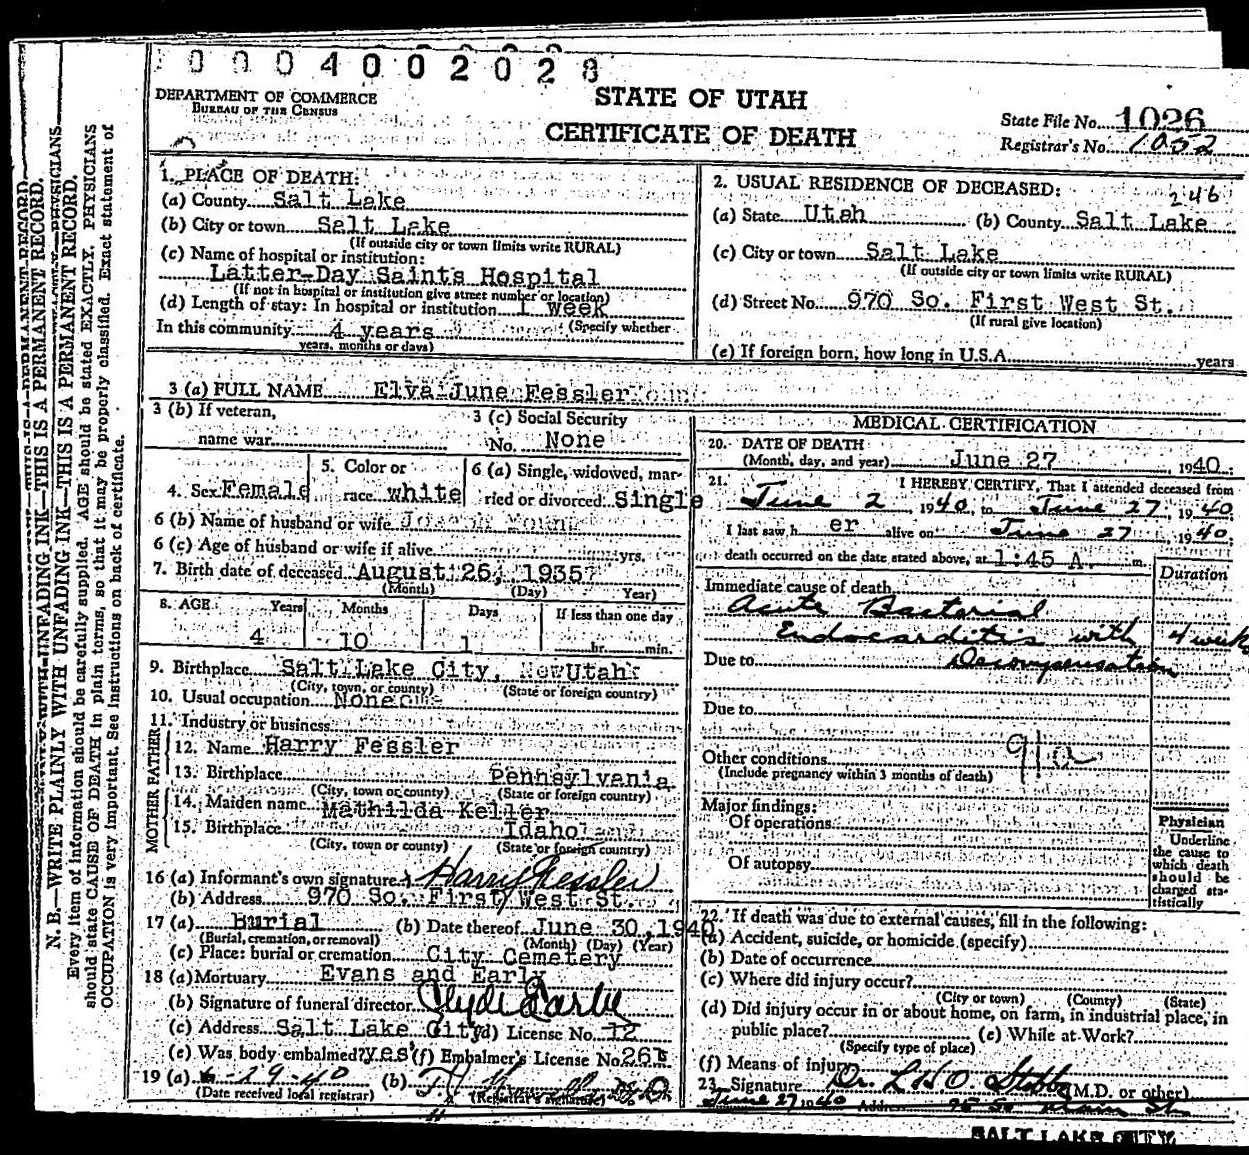 0004002028
DEPARTMENT OF COMMERCE
BUREAU OF THE CENSUS
STATE OF UTAH
CERTIFICATE OF DEATH
State File No. 1026
Registrar's No. 1052
246
1. PLACE OF DEATH:
(a) County Salt Lake
(b) City or town Salt Lake
(If outside city or town limits write RURAL)
(c) Name of hospital or institution:
Latter-Day Saints Hospital
(If not in hospital or institution give street number or location)
(d) Length of stay: In hospital or institution 1 week
(Specify whether
In this community 4 years
years, months or days)
2. USUAL RESIDENCE OF DECEASED:
(a) State Utah (b) County Salt Lake
(c) City or town Salt Lake
(If outside city or town limits write RURAL)
(d) Street No. 970 So. First West St.
(If rural give location)
(e) If foreign born, how long in U.S.A. years
3 (a) FULL NAME Elva June Fessler
3 (b) If veteran,
name war
3 (c) Social Security
No. None
4. Sex Female
5. Color or
race white
6 (a) Single, widowed, mar-
ried or divorced Single
6 (b) Name of husband or wife
6 (c) Age of husband or wife if alive yrs.
7. Birth date of deceased August 26, 1935
(Month) (Day) Year)
8. AGE Years Months Days If less than one day
4 10 1 hr. min.
9. Birthplace Salt Lake City, Utah
(City, town, or county) (State or foreign country)
10. Usual occupation None
11. Industry or business
FATHER
12. Name Harry Fessler
13. Birthplace Pennsylvania
(City, town or county) (State or foreign country)
MOTHER
14. Maiden name Mathilda Keller
15. Birthplace Idaho
(City, town or county) (State or foreign country)
16 (a) Informant's own signature Harry Fessler
(b) Address 970 So. First West St.
17 (a) Burial (b) Date thereof June 30, 1940
(Burial, cremation, or removal) (Month) (Day) (Year)
(c) Place: burial or cremation City Cemetery
18 (a) Mortuary Evans and Early
(b) Signature of funeral director Clyde Early
(c) Address Salt Lake City (d) License No. 12
(e) Was body embalmed? yes (f) Embalmer's License No.
19 (a) 6-29-40 (b)
(Date received local registrar) (Registrar's signature)
MEDICAL CERTIFICATION
20. DATE OF DEATH
(Month, day, and year) June 27, 1940
21. I HEREBY CERTIFY, That I attended deceased from
June 2, 1940, to June 27, 1940
I last saw h er alive on June 27, 1940.
death occurred on the date stated above, at 1:45 A. m.
Duration
Immediate cause of death
Acute Bacterial
Endocarditis with 4 weeks
Due to Decompensation
Due to
91a
Other conditions
(Include pregnancy within 3 months of death)
Major findings:
Of operations
Of autopsy
Physician
Underline
the cause to
which death
should be
charged sta-
tistically
22. If death was due to external causes, fill in the following:
(a) Accident, suicide, or homicide (specify)
(b) Date of occurrence
(c) Where did injury occur?
(City or town) (County) (State)
(d) Did injury occur in or about home, on farm, in industrial place, in
public place? (e) While at Work?
(Specify type of place)
(f) Means of injury
23. Signature Dr. L H O. Stobbe (M.D. or other)
June 27 1940 Address So Main St.
SALT LAKE CITY
N. B.—WRITE PLAINLY WITH UNFADING INK—THIS IS A PERMANENT RECORD.
Every item of information should be carefully supplied. AGE should be stated EXACTLY. PHYSICIANS
should state CAUSE OF DEATH in plain terms, so that it may be properly classified. Exact statement of
OCCUPATION is very important. See instructions on back of certificate.